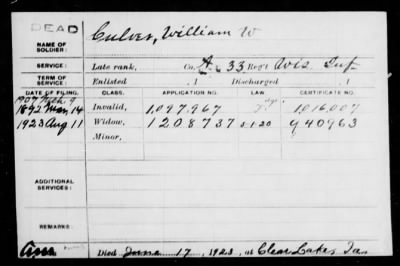 DEAD
Culver, William W
NAME OF SOLDIER:
SERVICE: Late rank, Co. A, 33 Reg't Wis. Inf.
TERM OF SERVICE: Enlisted , 1 Discharged , 1
DATE OF FILING. CLASS. APPLICATION NO. LAW CERTIFICATE NO.
1907 Feb. 9
1892 Mar 14 Invalid, 1,097,967 1,016,007
1923 Aug 11 Widow, 1208737 5-1-20 940963
Minor,
ADDITIONAL SERVICES:
REMARKS:
Died June 17, 1923, at Clear Lake, Ia.